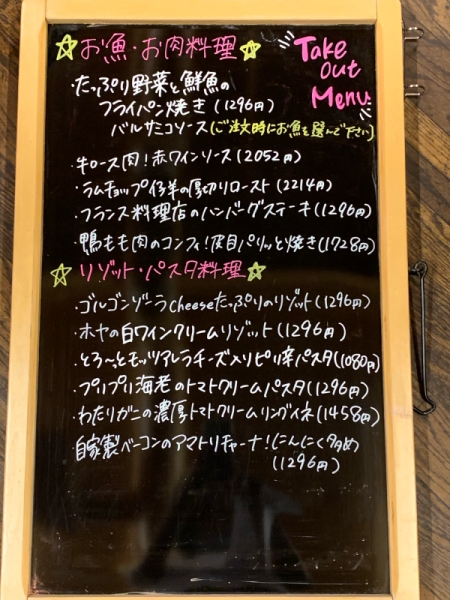 ☆お魚・お肉料理☆
Take
out
Menu
・たっぷり野菜と鮮魚の
フライパン焼き(1296円)
バルサミコソース(ご注文時にお魚を選んで下さい)
・牛ロース肉!赤ワインソース(2052円)
・ラムチョップ仔羊の厚切りロースト(2214円)
・フランス料理店のハンバーグステーキ(1296円)
・鴨もも肉のコンフィ!皮目パリッと焼き(1728円)
☆リゾット・パスタ料理☆
・ゴルゴンゾーラcheeseたっぷりのリゾット(1296円)
・ホヤの白ワインクリームリゾット(1296円)
・とろ〜っとモッツァレラチーズ入りピリ辛パスタ(1080円)
・プリプリ海老のトマトクリームパスタ(1296円)
・わたりガニの濃厚トマトクリームリングイネ(1458円)
自家製ベーコンのアマトリチャーナ!にんにく多め
(1296円)